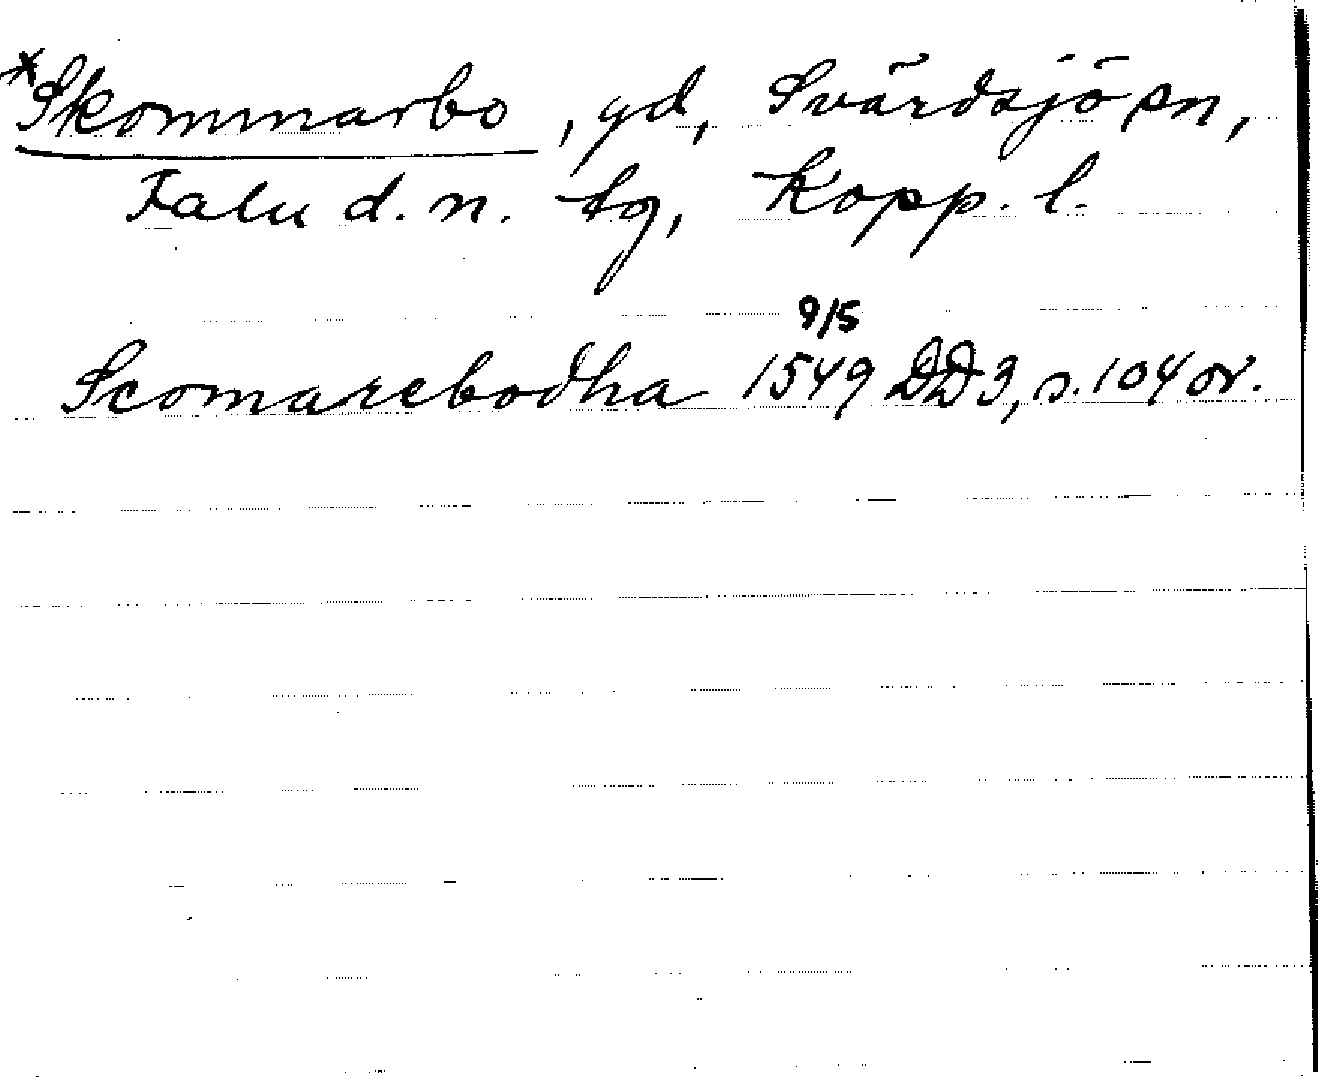 *Skommarbo, gd, Svärdsjö sn,
Falu d. n. tg, Kopp. l.
9/5
Scomarebodha 1549 DD3, s. 104 or.